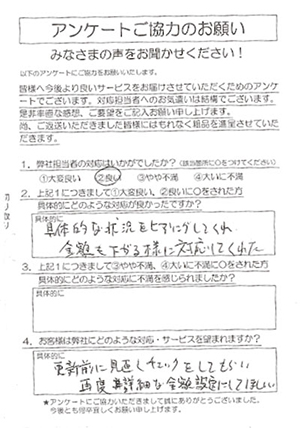 アンケートご協力のお願い
みなさまの声をお聞かせください！
以下のアンケートにご協力をお願いいたします。
皆様へ今後より良いサービスをお届けさせていただくためのアンケ
ートでございます。対応担当者へのお気遣いは結構でございます。
是非率直な感想、ご要望をご記入お願い申し上げます。
尚、ご返送いただきました皆様にはもれなく粗品を進呈させていた
だきます。
1．弊社担当者の対応はいかがでしたか？（該当箇所に○をつけてください）
①大変良い ②良い ③やや不満 ④大いに不満
2．上記1につきまして①大変良い、②良いに○をされた方
具体的にどのような対応が良かったですか？
具体的に
具体的な状況をヒアリングしてくれ
金額を下がる様に対応してくれた
3．上記1につきまして③やや不満、④大いに不満に○をされた方
具体的にどのような対応に不満を感じられましたか？
具体的に
4．お客様は弊社にどのような対応・サービスを望まれますか？
具体的に
更新前に見直しチェックをしてもらい
再度詳細な金額設定にしてほしい
★アンケートにご協力いただきまして誠にありがとうございました。
今後とも何卒宜しくお願い申し上げます。